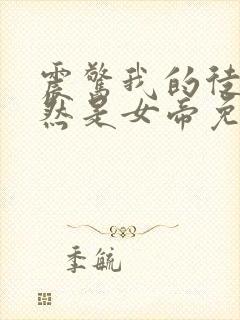 震惊我的徒
然是女帝免
季毓